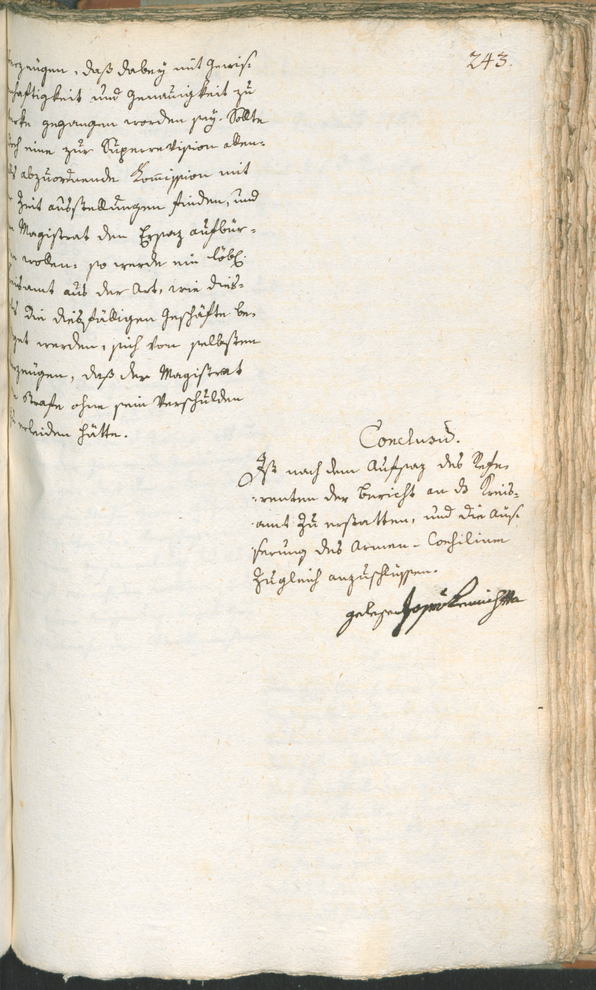 243.
erzeugen, daß dabey mit Gewis¬
nhaftigkeit und Genauigkeit zu
erke gegangen worden sey. Sollte
doch eine zur Superrevision allen¬
ls abzuordnende Kommission mit
r Zeit ausstellungen finden, und
n Magistrat den Ersaz aufbür¬
n wollen, so werde ein löbl.
eisamt aus der Art, wie dies¬
s die diesfälligen Geschäfte be¬
get werden, sich von selbsten
rzeugen, daß der Magistrat
e Strafe ohne sein Verschulden
erleiden hätte.
Conclusū.
Ist nach dem Aufsaz des Refe¬
renten der Bericht an ds Kreis¬
amt zu erstatten, und die Aüs¬
serung des Armen-Consilium
zugleich anzuschlüssen.
gelesen